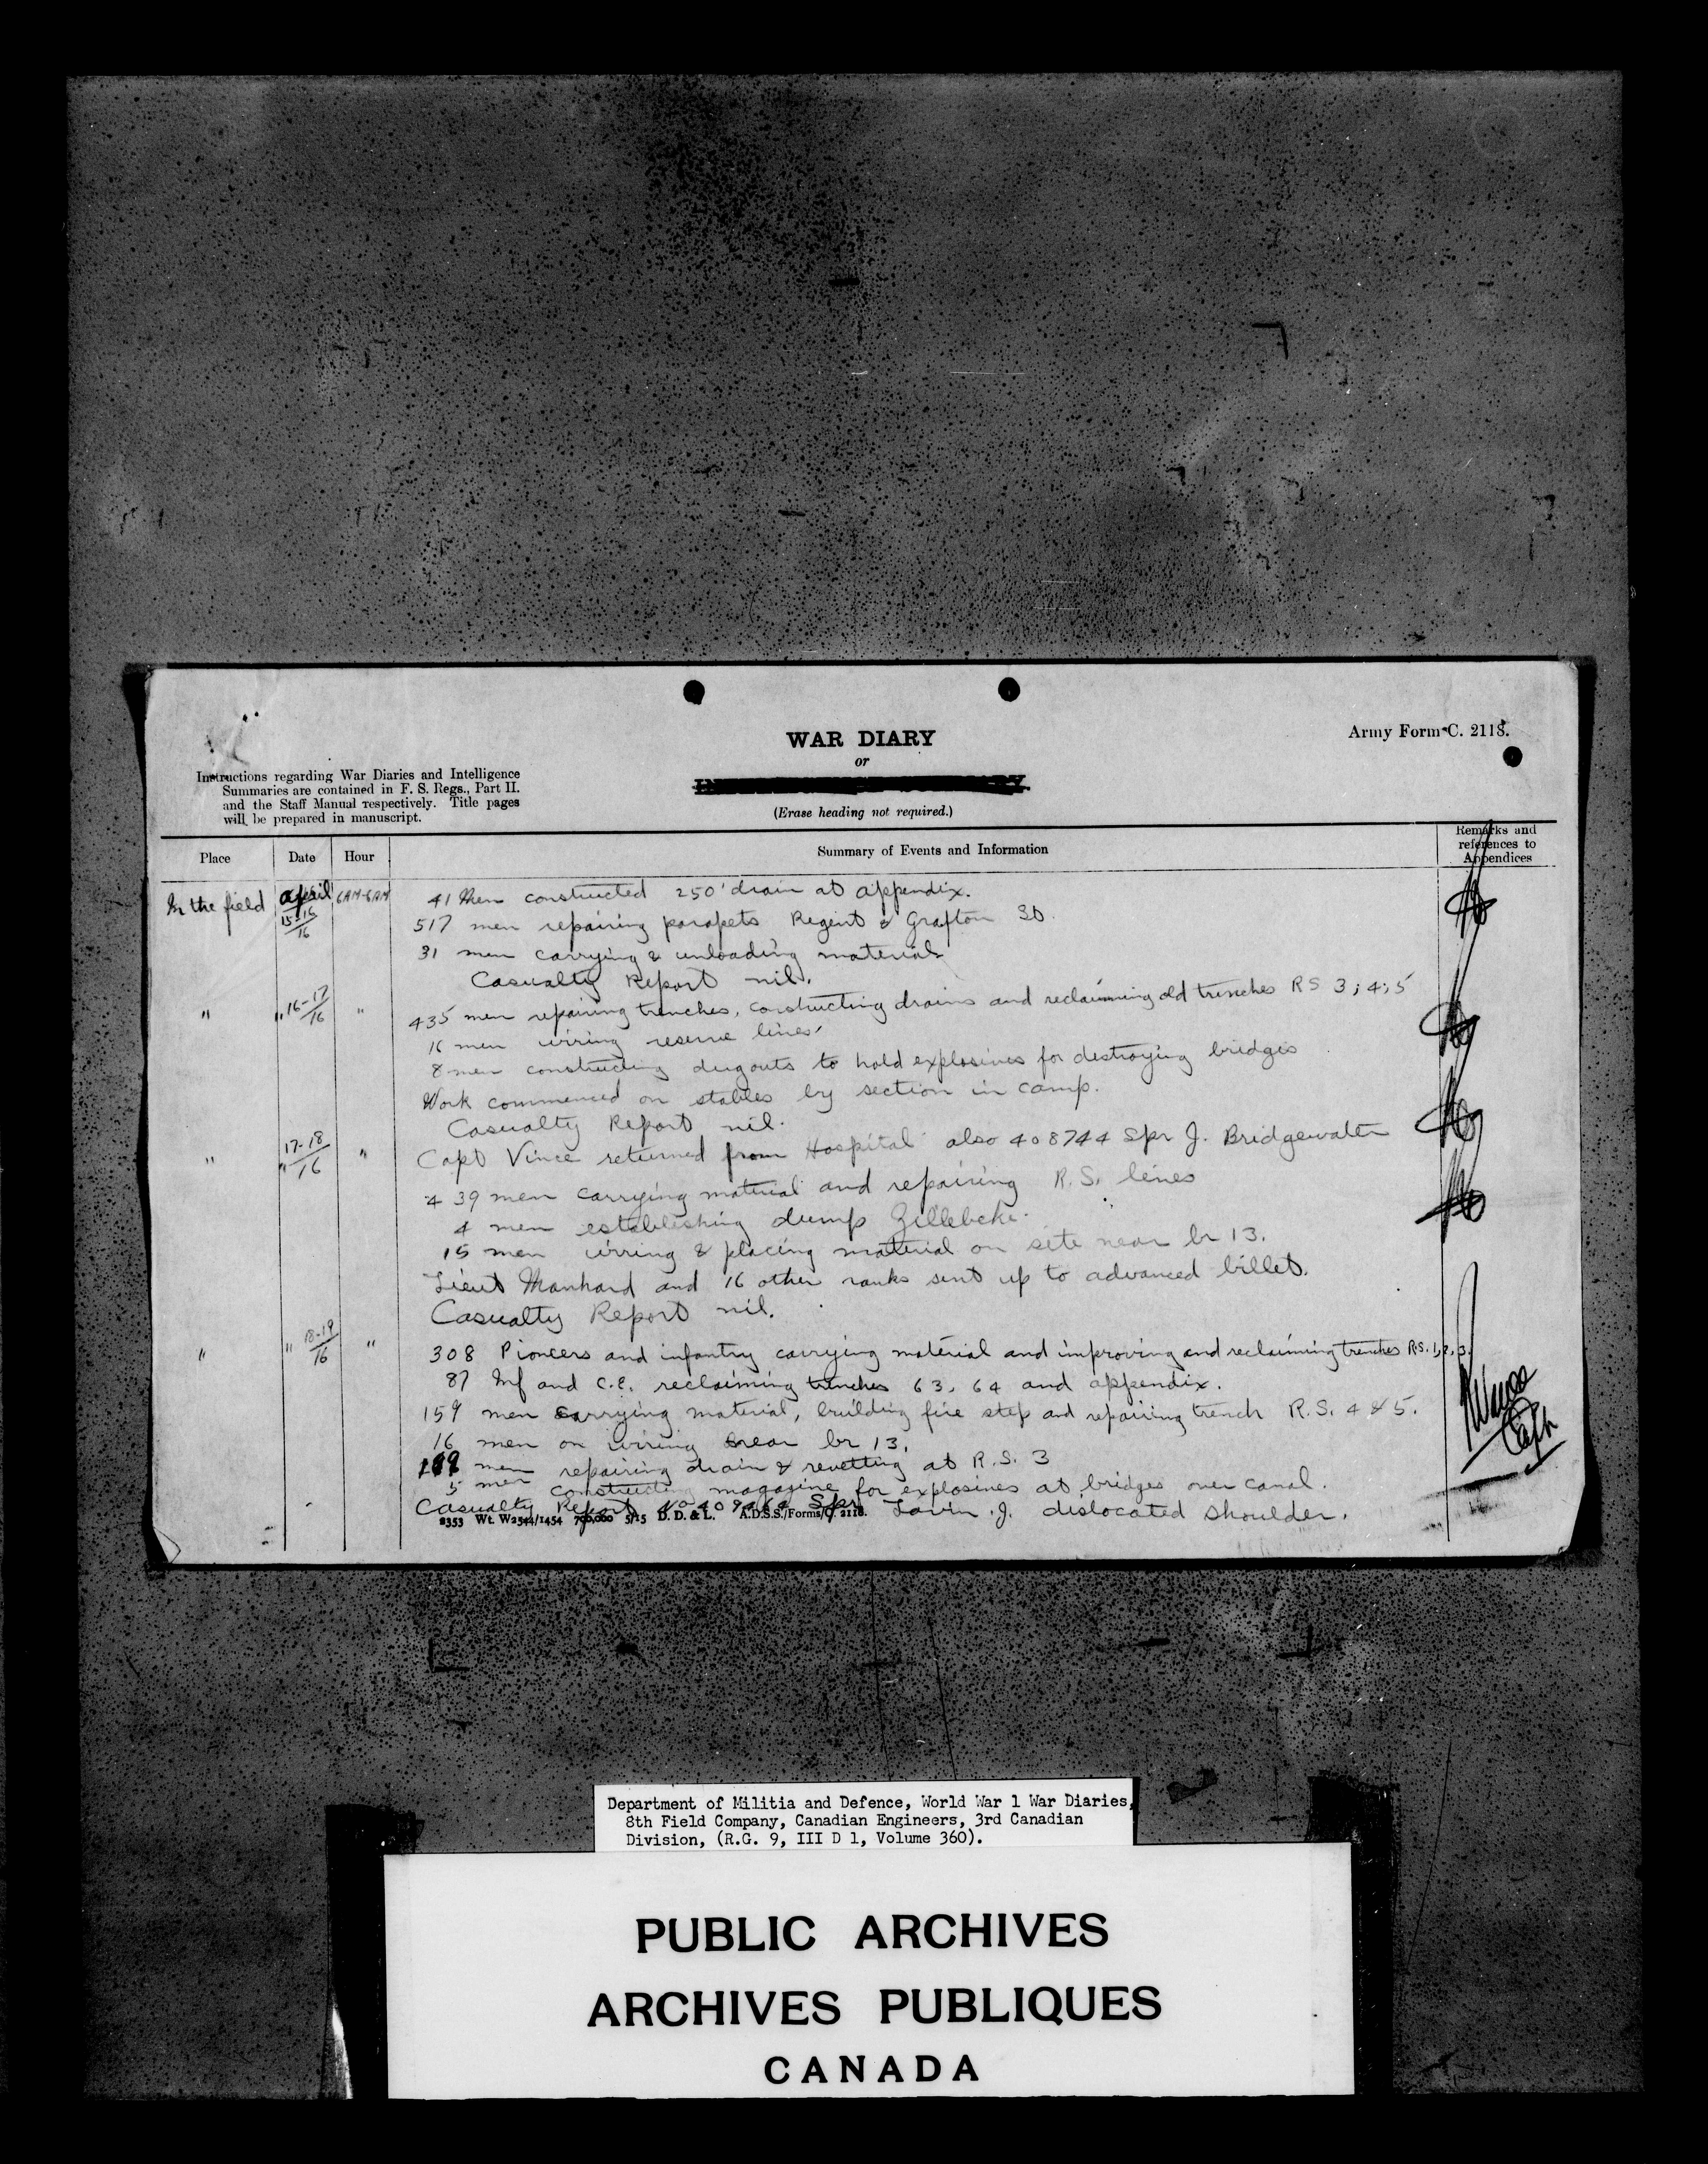 WAR DIARY
or
(Erase heading not required.)
Army Form C. 2118.
Instructions regarding War Diaries and Intelligence
Summaries are contained in F. S. Regs., Part II.
and the Staff Manual respectively. Title pages
will be prepared in manuscript.
Place Date Hour Summary of Events and Information Remarks and references to Appendices
In the field April 15-16/16 6AM-6AM 41 Men constructed 250' drain at appendix.
517 men repairing parapets Regent & Grafton St.
31 men carrying & unloading material
Casualty Report nil.
" " 16-17/16 " 435 men repairing trenches, constructing drains and reclaiming old trenches RS 3; 4; 5
16 men wiring reserve lines
8 men constructing dugouts to hold explosives for destroying bridges
Work commenced on stables by section in camp.
Casualty Report nil.
" " 17-18/16 " Capt Vince returned from Hospital also 408744 Spr J. Bridgewater
439 men carrying material and repairing R.S. lines
4 men establishing dump Zillebeke.
15 men wiring & placing material on site near br 13.
Lieut Manhard and 16 other ranks sent up to advanced billets.
Casualty Report nil.
" " 18-19/16 " 308 Pioneers and infantry carrying material and improving and reclaiming trenches R.S. 1, 2, 3.
87 Inf and C.E. reclaiming trenches 63, 64 and appendix.
159 men carrying material, building fire step and repairing trench R.S. 4 & 5.
16 men on wiring near br 13.
men repairing drain & revetting at R.S. 3
5 men constructing magazine for explosives at bridges over canal.
Casualty Report No 409464 Spr Lavin .J. dislocated shoulder.
2353 Wt. W2544/1454 700,000 5/15 D. D. & L. A.D.S.S./Forms/C. 2118.
Capt
Department of Militia and Defence, World War 1 War Diaries,
8th Field Company, Canadian Engineers, 3rd Canadian
Division, (R.G. 9, III D 1, Volume 360).
PUBLIC ARCHIVES
ARCHIVES PUBLIQUES
CANADA